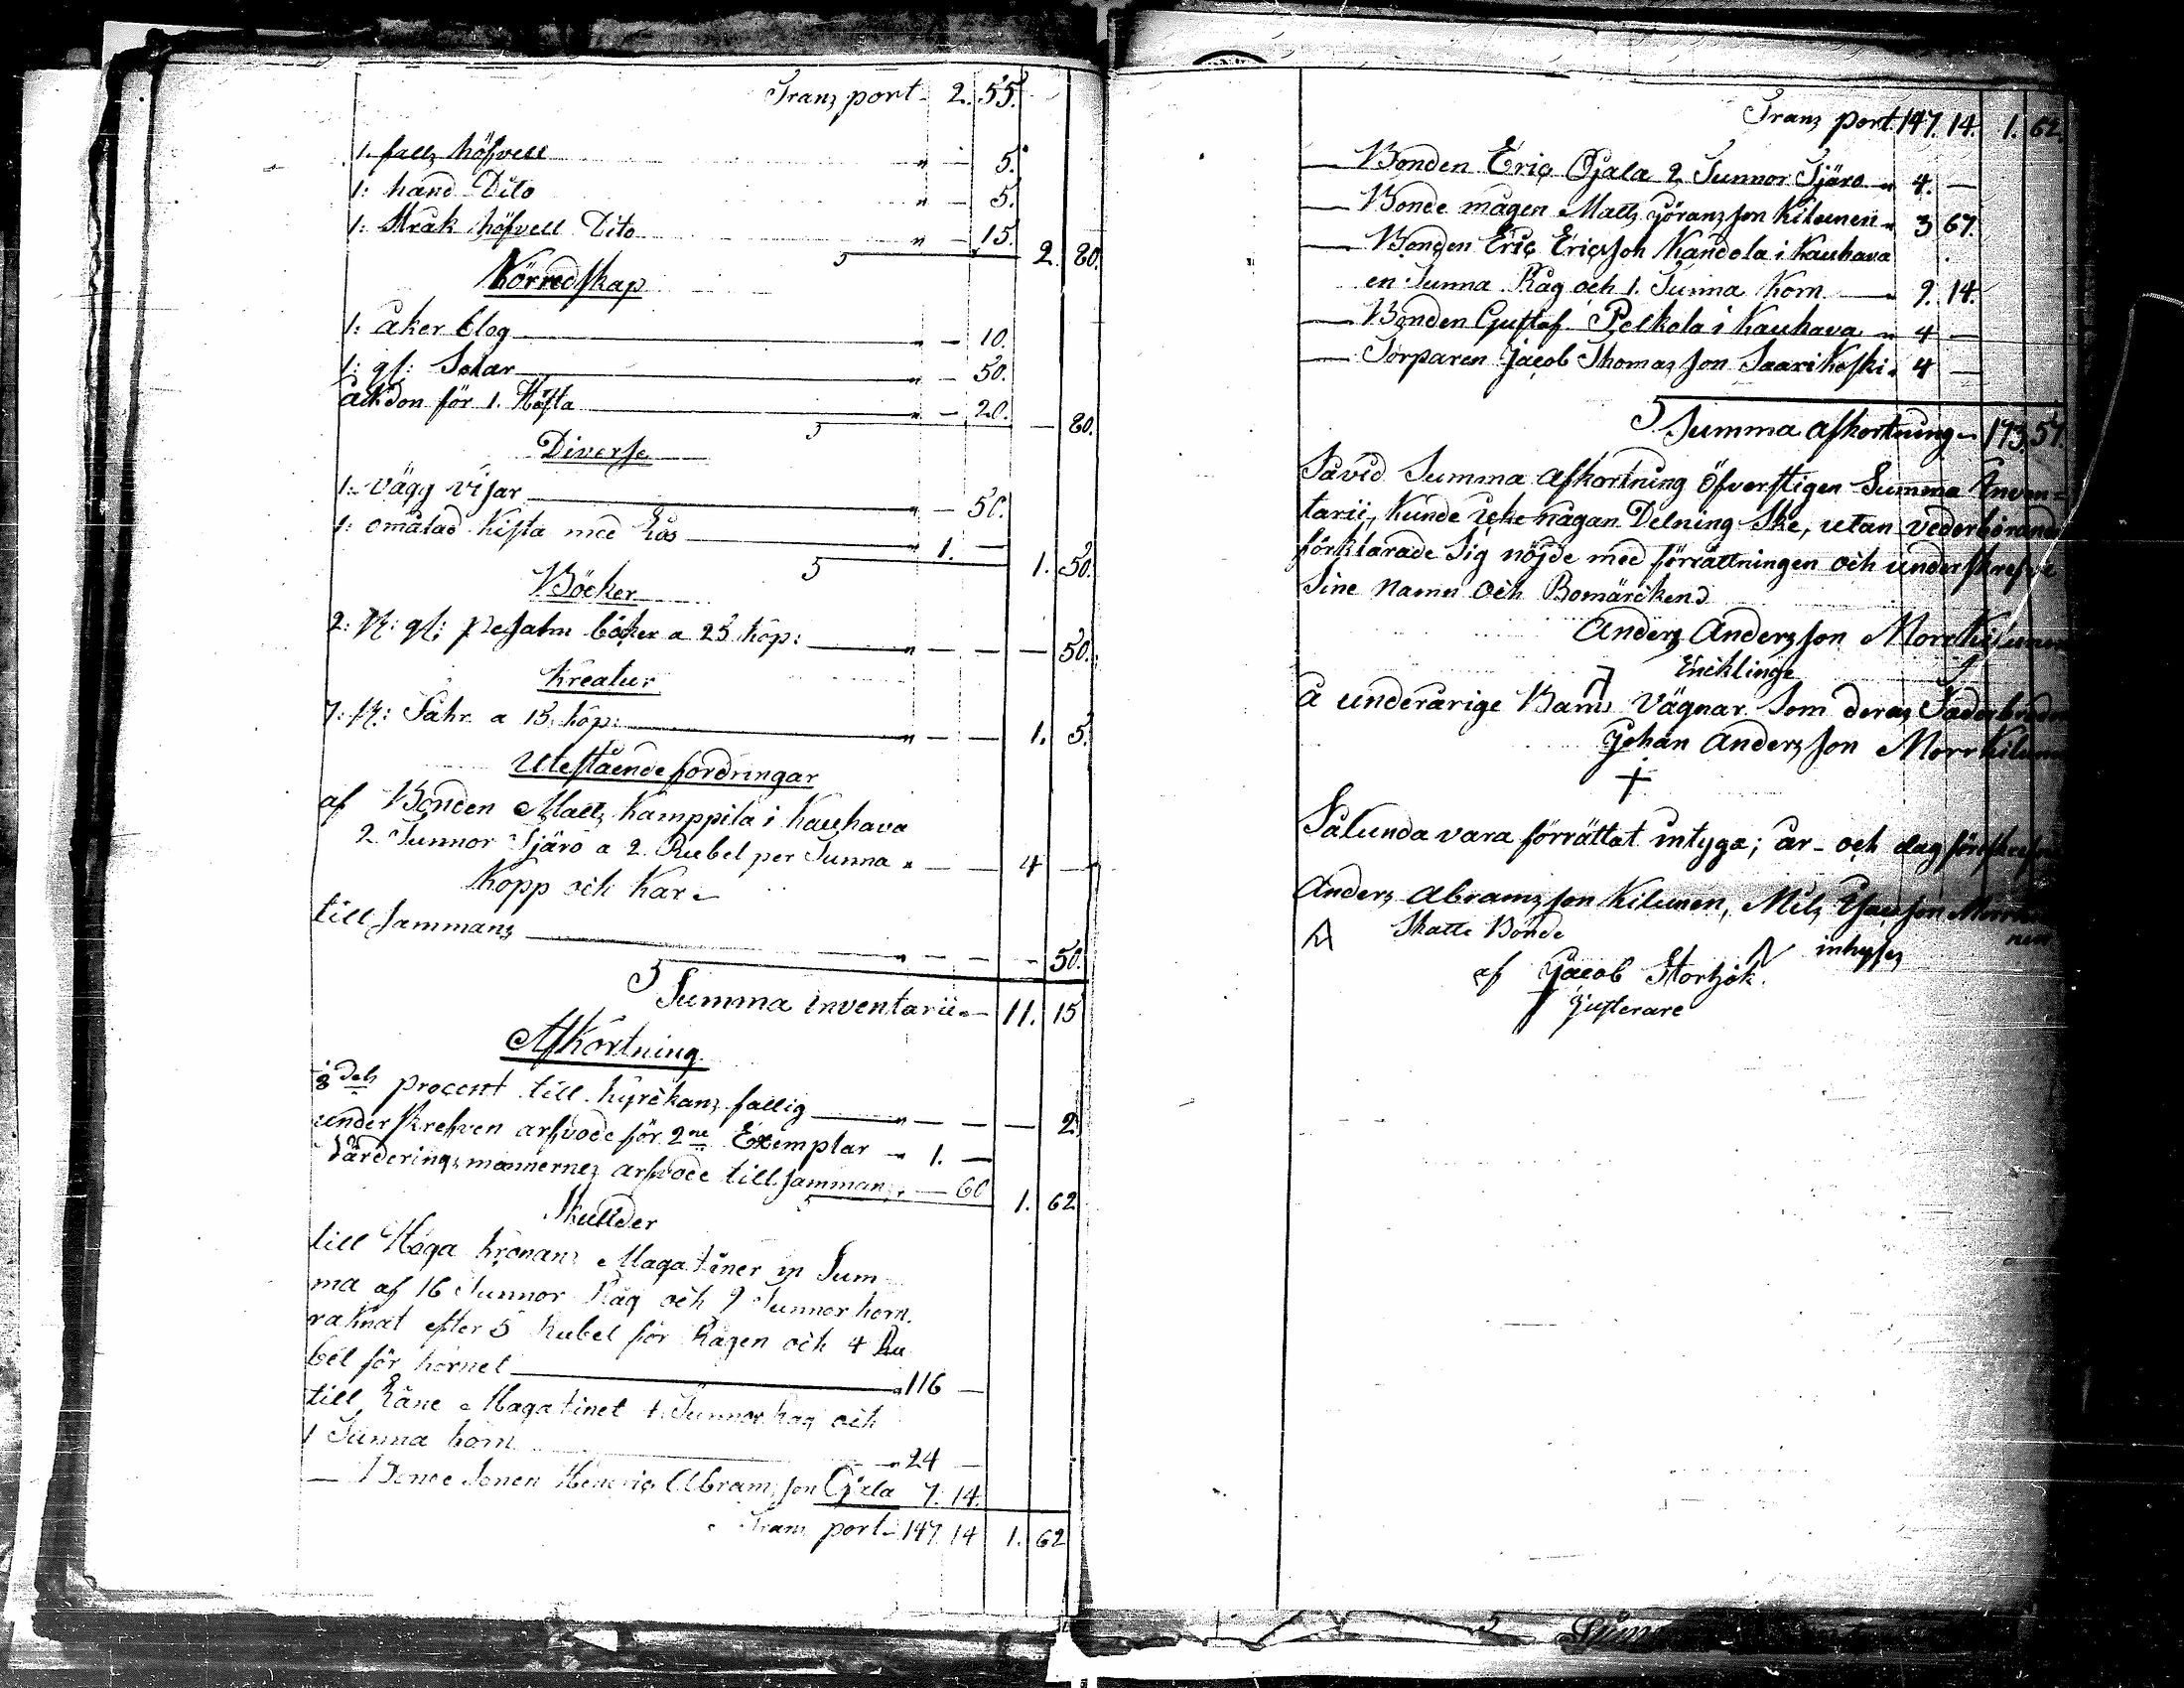 Transport 2. 55.
1. falls höfvell " — 5.
1: hand Dito " — 5.
1: Stråk höfvell Dito " — 15. 2. 80.
Körredskap
1: åker blog " — 10.
1: gl: Selar " — 50.
åkdon för 1. Häfta " — 20. — 80.
Diverse
1: vägg visar " — 50.
1: omålad Kista med Lås " 1. — 1. 50.
Böcker
2: st: gl: psalm böker a 25 kop: " — — — 50.
Kreatur
7: st: Fåhr a 15. kop: " — — 1. 5.
Utestående fordringar
af Bonden Matts Kamppila i Kauhava
2 Tunnor Tjäro a 2. Rubel per Tunna " — — 4 —
Kopp och Kar
till sammans " — — — 50.
Summa inventarii " — 11. 15
Afkortning
1/8 dels procent till kyrckans fattig " — — — 2
underskrefven arfvode för 2ne Exemplar " 1. —
Värderings männernes arfvode tillsammans " — 60 1. 62
Skullder
till Höga kronans Magatiner in Sum-
ma af 16 Tunnor Råg och 9 Tunnor korn.
räknat efter 5 Rubel för Rågen och 4 Ru
bel för kornet " 116 —
till Låne Magatinet 4 Tunnor Råg och
1 Tunna korn " 24 —
— Bonde Sonen Henric Abramsson Ojala 7. 14.
Transport 147. 14 1. 62
Transport 147. 14. 1. 62.
— Bonden Eric Ojala 2 Tunnor Tjäro " 4. —
— Bonde mågen Matts Göransson Kilunen " 3 67.
— Bonden Eric Ericsson Kandola i Kauhava
en Tunna Råg och 1. Tunna Korn — " 9. 14.
— Bonden Gustaf Pelkola i Kauhava " 4 —
— Torparen Jacob Thomasson Saarikoski " 4 —
Summa afkortning " 173. 57.
Såvid Summa afkortning öfverstigen Summa Inven-
tarii, kunde icke någon Delning Ske, utan vederbörande
förklarade Sig nöjde med förrättningen och underskrefve
Sine Namn och Bomärckend
Anders Andersson Morr Kilunen
Encklinge
å underårige Barns Vägnar Som deras
Johan Andersson Morr Kilunen
Sålunda vara förrättat intyga; år- och dag
Anders Abramsson Kilunen, Mils
Skatte Bonde
inhyses
af Jacob Stortsök.
Justerare